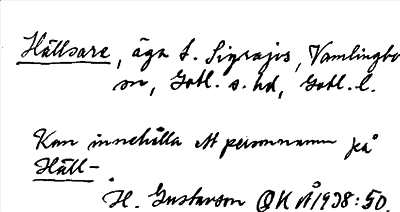 Hällsare, äga t. Sigrajvs, Vamlingbo
sn, Gotl. s. hd, Gotl. l.
Kan innehålla ett personnamn på
Häll-
H. Gustavson OK Å 1938:50.